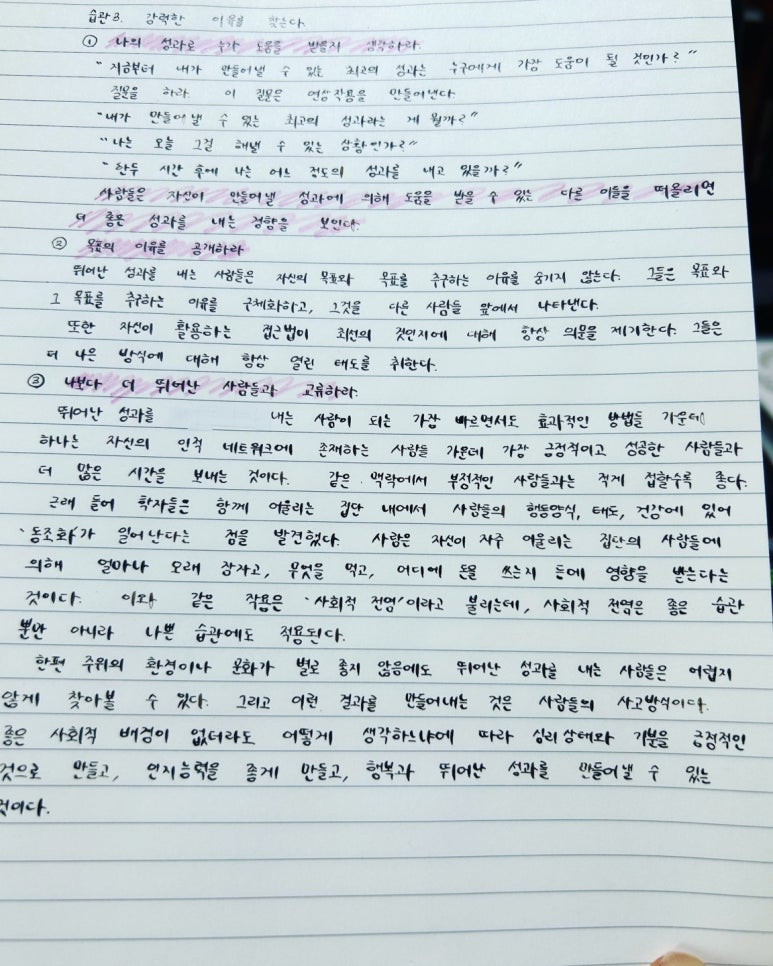 습관 3. 강력한 이유를 찾는다.
① 나의 성과로 누가 도움을 받을지 생각하라.
"지금부터 내가 만들어낼 수 있는 최고의 성과는 누구에게 가장 도움이 될 것인가?"
질문을 하라. 이 질문은 연상작용을 만들어낸다
"내가 만들어 낼 수 있는 최고의 성과라는 게 뭘까?"
"나는 오늘 그걸 해낼 수 있는 상황인가?"
"한두 시간 후에 나는 어느 정도의 성과를 내고 있을까?"
사람들은 자신이 만들어낼 성과에 의해 도움을 받을 수 있는 다른 이들을 떠올리면
더 좋은 성과를 내는 경향을 보인다.
② 목표의 이유를 공개하라
뛰어난 성과를 내는 사람들은 자신의 목표와 목표를 추구하는 이유를 숨기지 않는다. 그들은 목표와
그 목표를 추구하는 이유를 구체화하고, 그것을 다른 사람들 앞에서 나타낸다.
또한 자신이 활용하는 접근법이 최선의 것인지에 대해 항상 의문을 제기한다. 그들은
더 나은 방식에 대해 항상 열린 태도를 취한다.
③ 나보다 더 뛰어난 사람들과 교류하라.
뛰어난 성과를 내는 사람이 되는 가장 빠르면서도 효과적인 방법들 가운데
하나는 자신의 인적 네트워크에 존재하는 사람들 가운데 가장 긍정적이고 성공한 사람들과
더 많은 시간을 보내는 것이다. 같은 맥락에서 부정적인 사람들과는 적게 접할수록 좋다.
근래 들어 학자들은 함께 어울리는 집단 내에서 사람들의 행동양식, 태도, 건강에 있어
'동조화'가 일어난다는 점을 발견했다. 사람은 자신이 자주 어울리는 집단의 사람들에
의해 얼마나 오래 잠자고, 무엇을 먹고, 어디에 돈을 쓰는지 등에 영향을 받는다는
것이다. 이와 같은 작용은 '사회적 전염'이라고 불리는데, 사회적 전염은 좋은 습관
뿐만 아니라 나쁜 습관에도 적용된다.
한편 주위의 환경이나 문화가 별로 좋지 않음에도 뛰어난 성과를 내는 사람들은 어렵지
않게 찾아볼 수 있다. 그리고 이런 결과를 만들어내는 것은 사람들의 사고방식이다.
좋은 사회적 배경이 없더라도 어떻게 생각하느냐에 따라 심리상태와 기분을 긍정적인
것으로 만들고, 인지능력을 좋게 만들고, 행복과 뛰어난 성과를 만들어낼 수 있는
것이다.